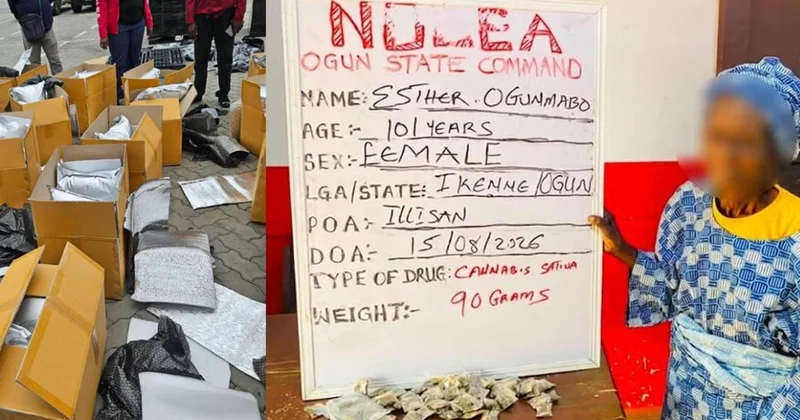 NDLEA
OGUN STATE COMMAND
NAME:- ESTHER. OGUNMABO
AGE:- 101 YEARS
SEX:- FEMALE
LGA/STATE: IKENNE/OGUN
POA:- ILLISAN
DOA:- 15/08/2026
TYPE OF DRUG: CANNABIS SATIVA
WEIGHT:- 90 GRAMS